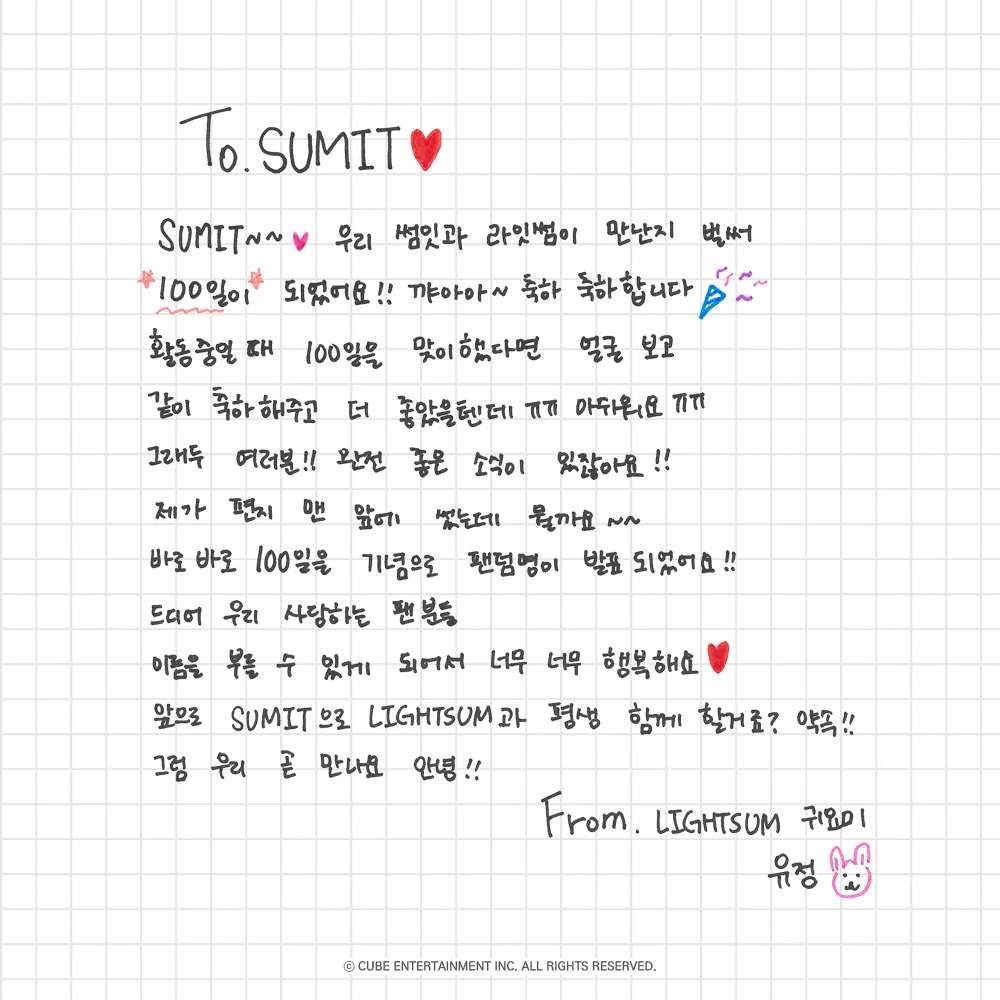 To. SUMIT
SUMIT~~ 우리 썸잇과 라잇썸이 만난지 벌써
100일이 되었어요!! 꺄아아~ 축하 축하합니다
활동중일 때 100일을 맞이했다면 얼굴 보고
같이 축하해주고 더 좋았을텐데 ㅠㅠ 아쉬워요 ㅠㅠ
그래두 여러분!! 완전 좋은 소식이 있잖아요!!
제가 편지 맨 앞에 썼는데 뭘까요~~
바로바로 100일을 기념으로 팬덤명이 발표 되었어요!!
드디어 우리 사담하는 팬분들
이름을 부를 수 있게 되어서 너무 너무 행복해요
앞으로 SUMIT으로 LIGHTSUM과 평생 함께 할거죠? 약속!!
그럼 우리 곧 만나요 안녕!!
From. LIGHTSUM 귀요미
유정
© CUBE ENTERTAINMENT INC. ALL RIGHTS RESERVED.